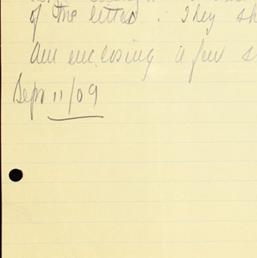 of the letter. They sh
Am enclosing a few s
Sep 11/09